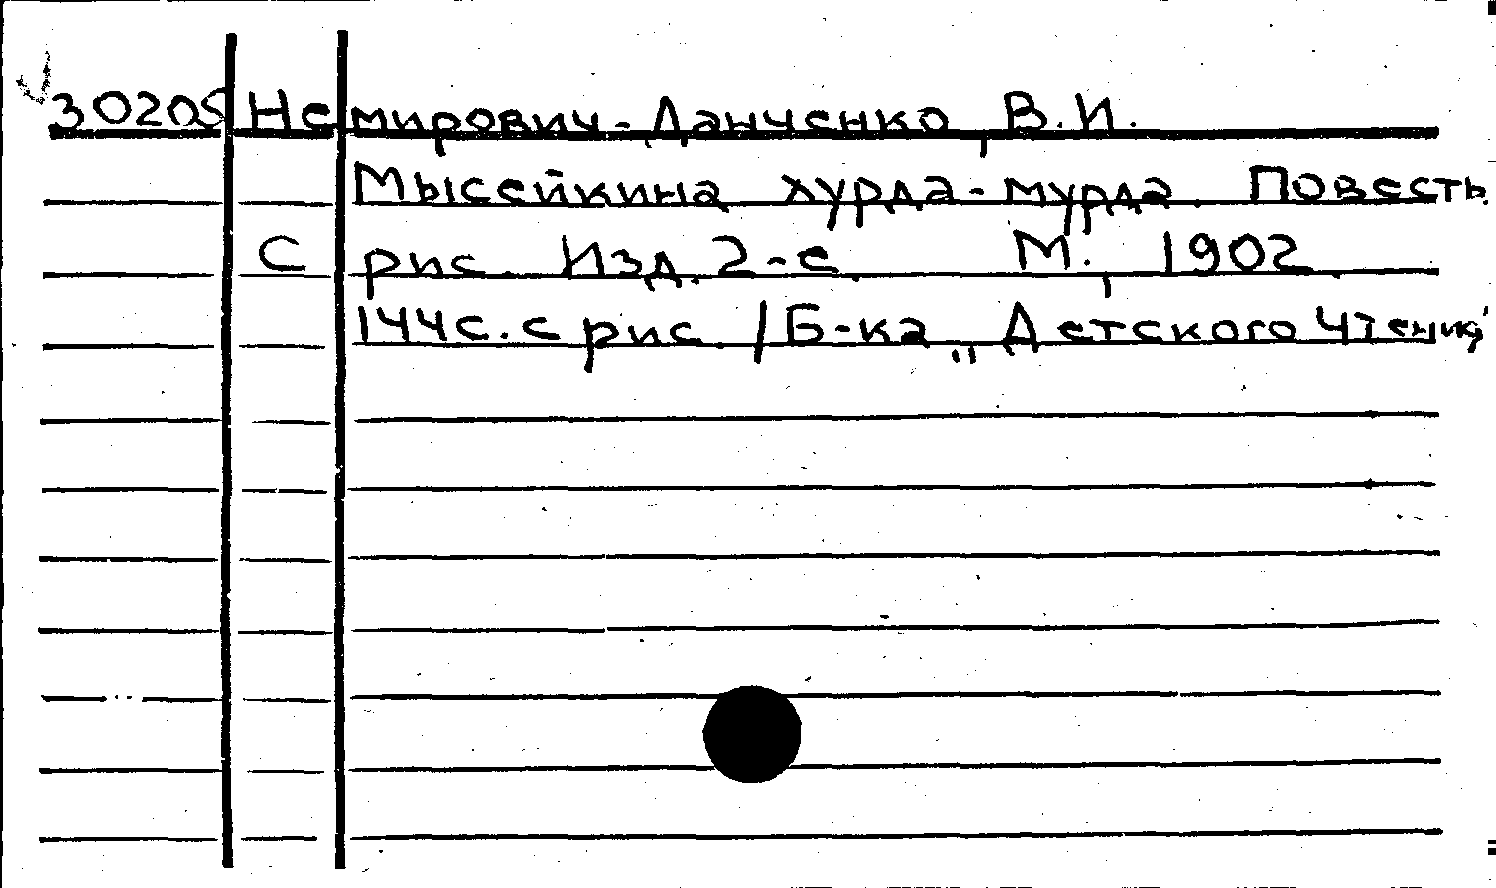 30205 Немирович-Данченко, В.И.
Мысейкина хурда-мурда. Повесть.
С рис. Изд. 2-е. М., 1902.
144с. с рис. /Б-ка „Детского Чтения"